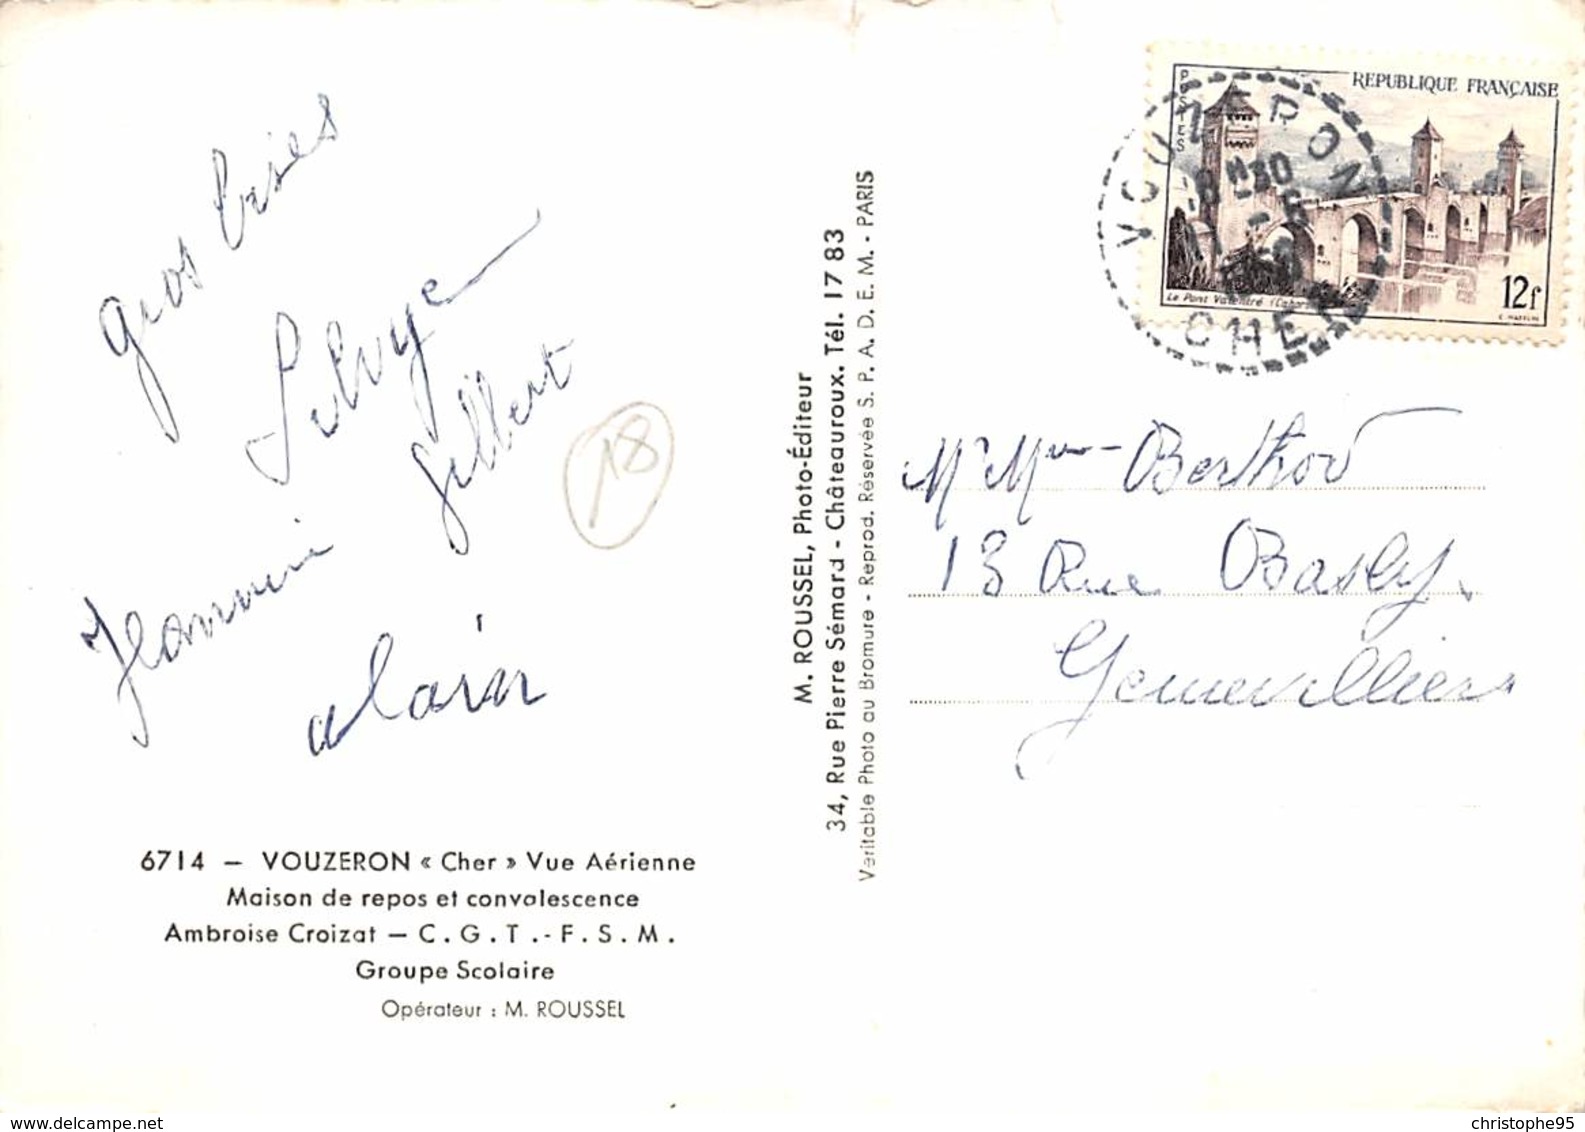 gros bises
Sylvye
Gilbert
Jeannine
alain
18
6714 — VOUZERON « Cher » Vue Aérienne
Maison de repos et convalescence
Ambroise Croizat — C.G.T.-F.S.M.
Groupe Scolaire
Opérateur : M. ROUSSEL
M. ROUSSEL, Photo-Éditeur
34, Rue Pierre Sémard - Châteauroux. Tél. 17 83
Veritable Photo au Bromure - Reprod. Réservée S. P. A. D. E. M. - PARIS
REPUBLIQUE FRANÇAISE
POSTES
Le Pont Valentré
12f
VOUZERON
CHER
Mr Mme Berthod
13 Rue Basly.
Gennevilliers
www.delcampe.net
christophe95